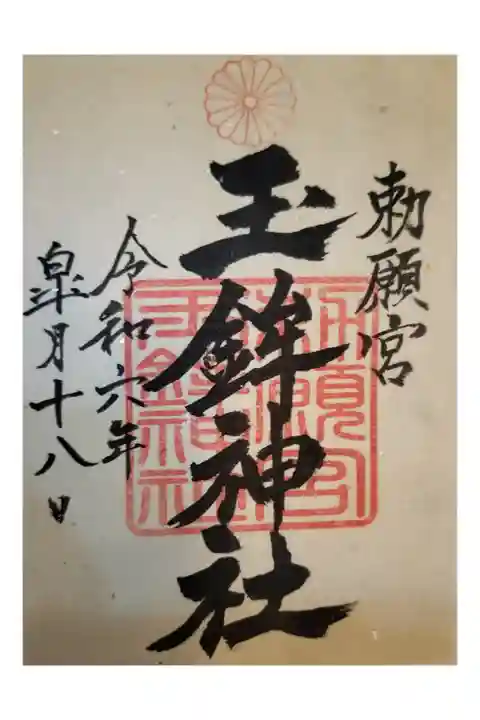 勅願宮
玉鉾神社
令和六年
皐月十八日
勅願宮
玉鉾神社